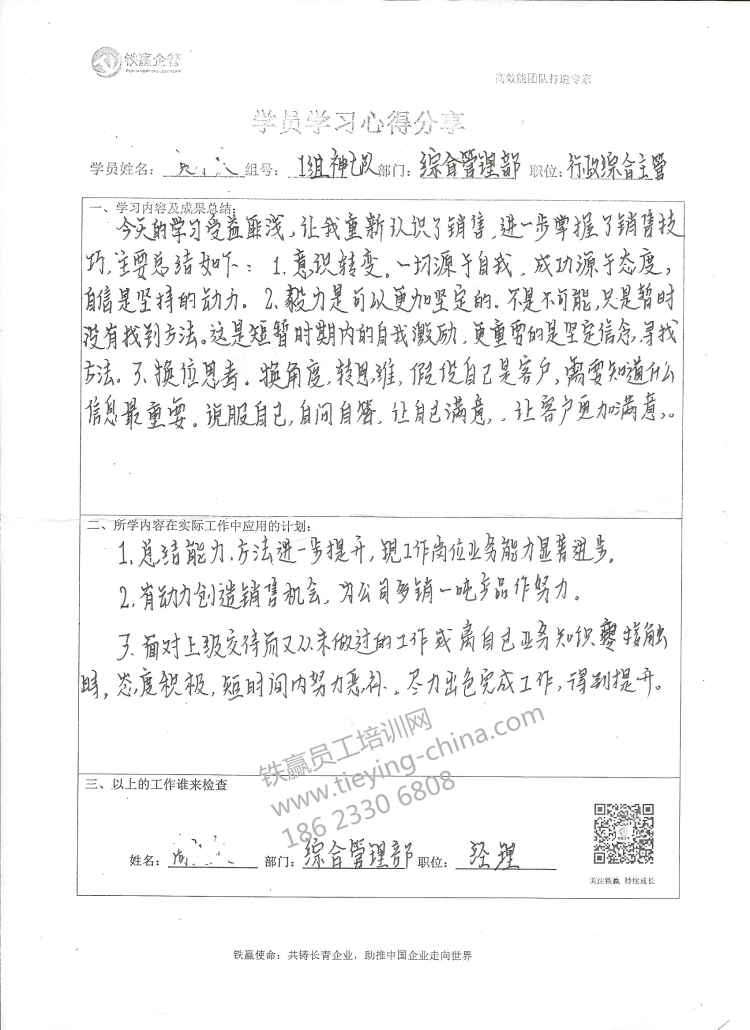 铁赢企管
高效能团队打造专家
学员学习心得分享
学员姓名： 组号：1组神七队部门：综合管理部 职位：行政综合主管
一、学习内容及成果总结：
今天的学习受益匪浅，让我重新认识了销售，进一步掌握了销售技
巧，主要总结如下：1.意识转变。一切源于自我，成功源于态度，
自信是坚持的动力。2.毅力是可以更加坚定的。不是不可能，只是暂时
没有找到方法。这是短暂时期内的自我激励，更重要的是坚定信念，寻找
方法。3.换位思考。换角度，转思维，假设自己是客户，需要知道什么
信息最重要。说服自己，自问自答，让自己满意，让客户更加满意。
二、所学内容在实际工作中应用的计划：
1.总结能力、方法进一步提升，现工作岗位业务能力显著进步。
2.有动力创造销售机会，为公司多销一吨产品作努力。
3.面对上级交待而又从未做过的工作或离自己业务知识零接触
时，态度积极，短时间内努力恶补。尽力出色完成工作，得到提升。
铁赢员工培训网
www.tieying-china.com
186 2330 6808
三、以上的工作谁来检查
姓名： 部门：综合管理部 职位：经理
关注铁赢 持续成长
铁赢使命：共铸长青企业，助推中国企业走向世界